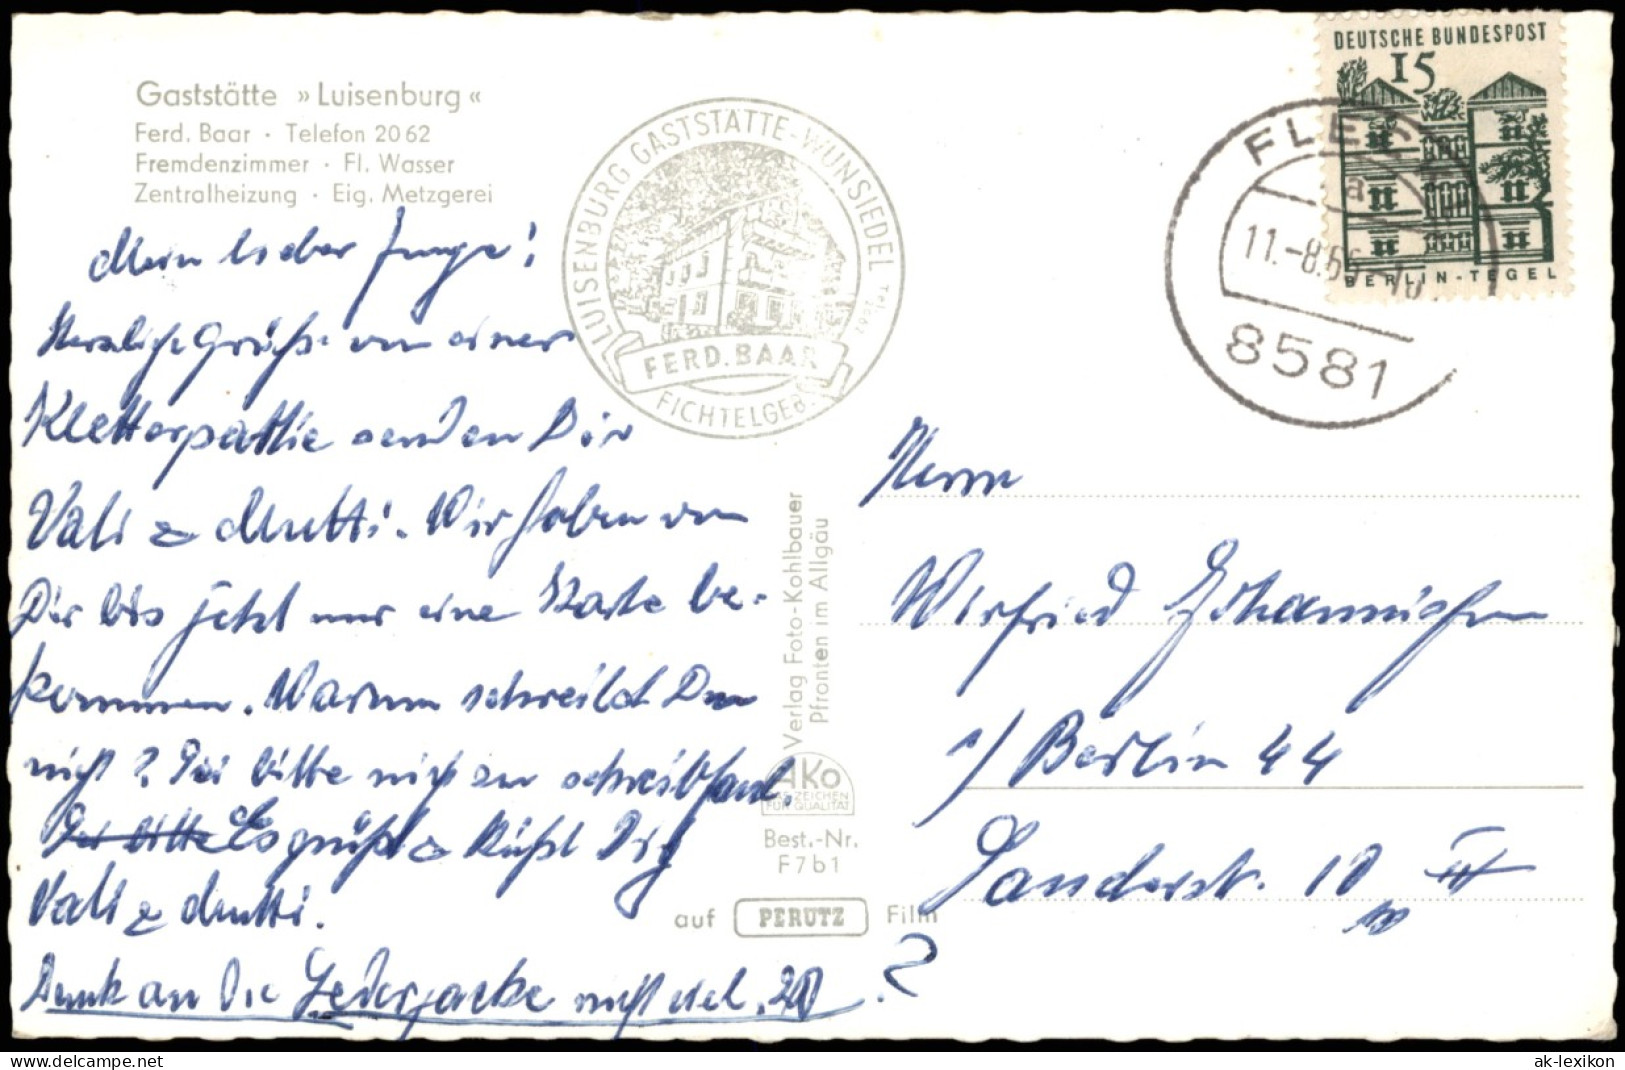 Gaststätte »Luisenburg«
Ferd. Baar · Telefon 2062
Fremdenzimmer · Fl. Wasser
Zentralheizung · Eig. Metzgerei
LUISENBURG GASTSTÄTTE-WUNSIEDEL Tel. 2062
FERD. BAAR
FICHTELGEB.
DEUTSCHE BUNDESPOST
15
BERLIN-TEGEL
a
11.-8.6
8581
Mein lieber Junge!
Herzliche Grüße von einer
Kletterpartie senden Dir
Vati & Mutti. Wir haben von
Dir bis jetzt nur eine Karte be-
kommen. Warum schreibst Du
nicht? Sei bitte nicht zu schreibfaul.
Sei bitte Es grüßt & küßt Dich
Vati & Mutti.
Denk an die Lederjacke nicht viel.
Verlag Foto-Kohlbauer
Pfronten im Allgäu
AKO
DAS ZEICHEN
FÜR QUALITÄT
Best.-Nr.
F7b1
auf PERUTZ Film
Herrn
Winfried
1) Berlin 44
Sanderstr. 10 III
www.delcampe.net
ak-lexikon